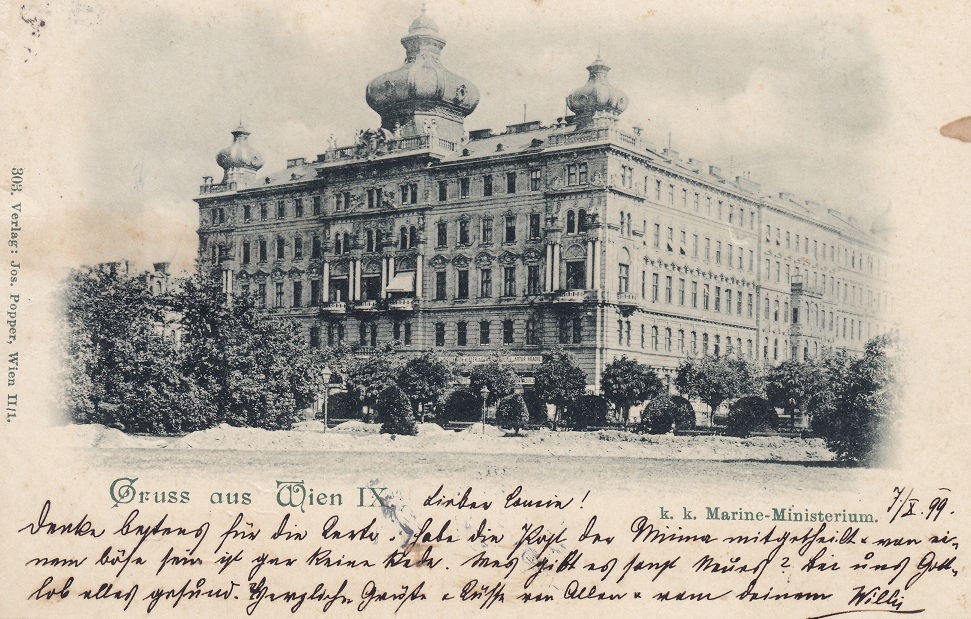 303. Verlag: Jos. Popper, Wien II/1.
Gruss aus Wien IX
k. k. Marine-Ministerium.
Lieber Cousin!
7/X. 99.
Danke bestens für die Karte. habe die Post der Mima mitgetheilt & von ei-
nem böse sein ist gar keine Rede. Was gibt es sonst Neues? Bei uns Gott-
lob alles gesund. Herzliche Grüße & Küsse von Allen & vom deinem Willy